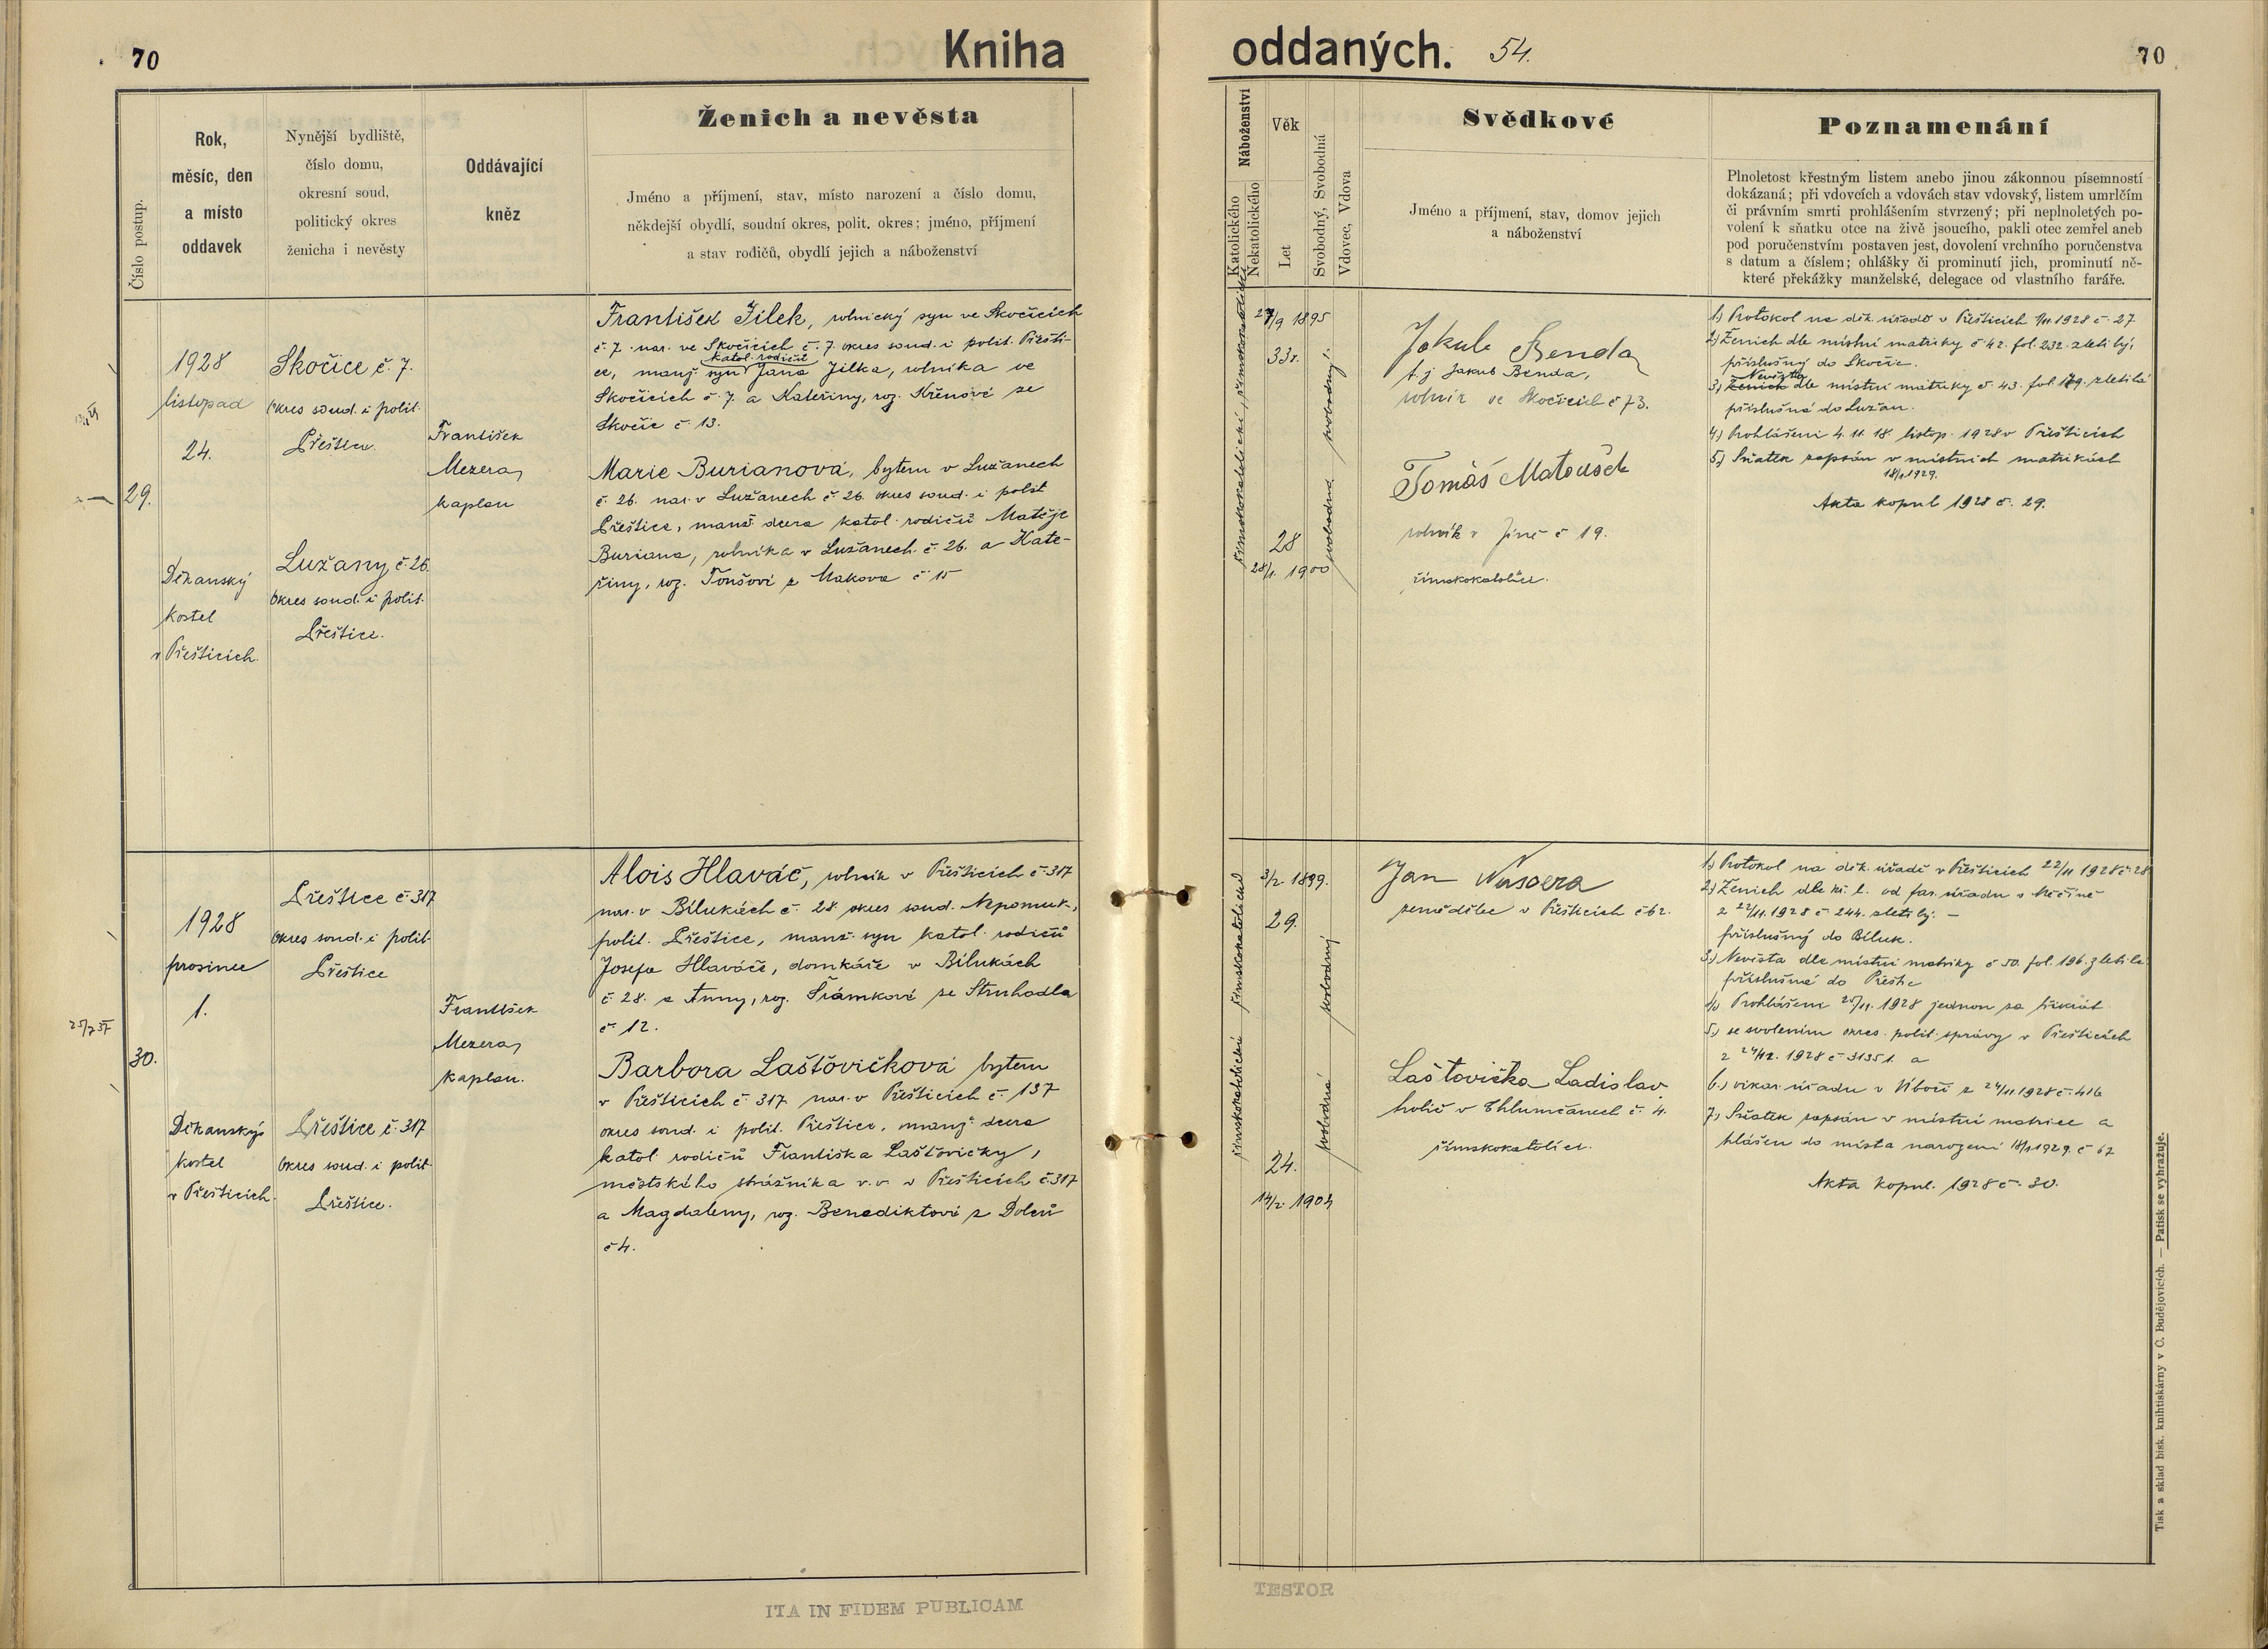 70
Kniha
oddaných.
54.
70
Číslo postup.
Rok,
měsíc, den
a místo
oddavek
Nynější bydliště,
číslo domu,
okresní soud,
politický okres
ženicha i nevěsty
Oddávající
kněz
Ženich a nevěsta
Jméno a příjmení, stav, místo narození a číslo domu,
někdejší obydlí, soudní okres, polit. okres; jméno, příjmení
a stav rodičů, obydlí jejich a náboženství
Náboženství
Katolického
Nekatolického
Věk
Let
Svobodný, Svobodná
Vdovec, Vdova
Svědkové
Jméno a příjmení, stav, domov jejich
a náboženství
Poznamenání
Plnoletost křestným listem anebo jinou zákonnou písemností
dokázaná; při vdovcích a vdovách stav vdovský, listem umrlčím
či právním smrti prohlášením stvrzený; při neplnoletých po-
volení k sňatku otce na živě jsoucího, pakli otec zemřel aneb
pod poručenstvím postaven jest, dovolení vrchního poručenstva
s datum a číslem; ohlášky či prominutí jich, prominutí ně-
které překážky manželské, delegace od vlastního faráře.
29.
1928
listopad
24.
Děkanský
kostel
v Přešticích.
Skočice č. 7.
Okres soud. i polit.
Přeštice.
Lužany č. 26.
Okres soud. i polit.
Přeštice.
František
Mezera,
kaplan
František Jílek, rolnický syn ve Skočicích
č. 7. nar. ve Skočicích č. 7. okres soud. i polit. Přešti-
katol. rodičů
ce, manž. syn Jana Jílka, rolníka ve
Skočicích č. 7. a Kateřiny, roz. Křenové ze
Skočic č. 13.
Marie Burianová, bytem v Lužanech
č. 26. nar. v Lužanech č. 26. okres soud. i polit
Přeštice, manž. dcera katol. rodičů Matěje
Buriana, rolníka v Lužanech č. 26. a Kate-
řiny, roz. Toušové z Makova č. 15
římskokatolické, římskokatolické
27/9 1895
33r.
28
28/1. 1900
svobodná svobodný.
Jakub Benda
t. j. Jakub Benda,
rolník ve Skočicích č 73.
Tomáš Matoušek
rolník v Jíně č 19.
římskokatolíci.
1) Protokol na děk. úřadě v Přešticích 1/11 1928 č. 27
2) Ženich dle místní matriky č 42. fol. 232. zletilý,
příslušný do Skočic.
Nevěsta
3) Ženich dle místní matriky č. 43. fol. 179. zletilá
příslušná do Lužan.
4) Prohlášeni 4. 11. 18. listop. 1928 v Přešticích
5) Sňatek zapsán v místních matrikách
18/1 1929.
Akta kopul 1928 č. 29.
25/7 37
30.
1928
prosinec
1.
Děkanský
kostel
v Přešticích.
Přeštice č. 317
Okres soud. i polit.
Přeštice
Přeštice č. 317
Okres soud. i polit.
Přeštice.
František
Mezera,
kaplan.
Alois Hlaváč, rolník v Přešticích č. 317
nar. v Bílukách č. 28. okres soud. Nepomuk,
polit. Přeštice, manž. syn katol. rodičů
Josefa Hlaváče, domkáře v Bílukách
č. 28. a Anny, roz. Šrámkové ze Struhadla
č. 12.
Barbora Laštovičková bytem
v Přešticích č. 317 nar. v Přešticích č. 137
okres soud. i polit. Přeštice, manž. dcera
katol rodičů Františka Laštovičky,
městského strážníka v. v. v Přešticích č. 317
a Magdaleny, roz. Benediktové z Dolců
č 4.
římskokatolické římskokatolické
3/2. 1899.
29.
24.
14/2. 1904
svobodná svobodný
Jan
zemědělec v Přešticích č 62.
Laštovička Ladislav
holič v Chlumčanech č. 4.
římskokatolíci.
1) Protokol na děk. úřadě v Přešticích 22/11 1928 č. 28
2) Ženich dle kř. l. od far. úřadu v Měčíně
z 22/11. 1928 č 244. zletilý. –
příslušný do Bíluk.
3) Nevěsta dle místní matriky č 50. fol. 196. zletilá
příslušná do Přeštic
4) Prohlášeni 25/11. 1928 jednou za třikrát
5) se svolením okres. polit. správy v Přešticích
z 24/12. 1928 č 31351. a
6.) vikar. úřadu v z 24/11 1928 č. 416
7) Sňatek zapsán v místní matrice a
hlášen do místa narození 18/1 1929. č 67
Akta kopul. 1928 č. 30.
Tisk a sklad bisk. knihtiskárny v Č. Budějovicích. — Patisk se vyhražuje.
ITA IN FIDEM PUBLICAM
TESTOR